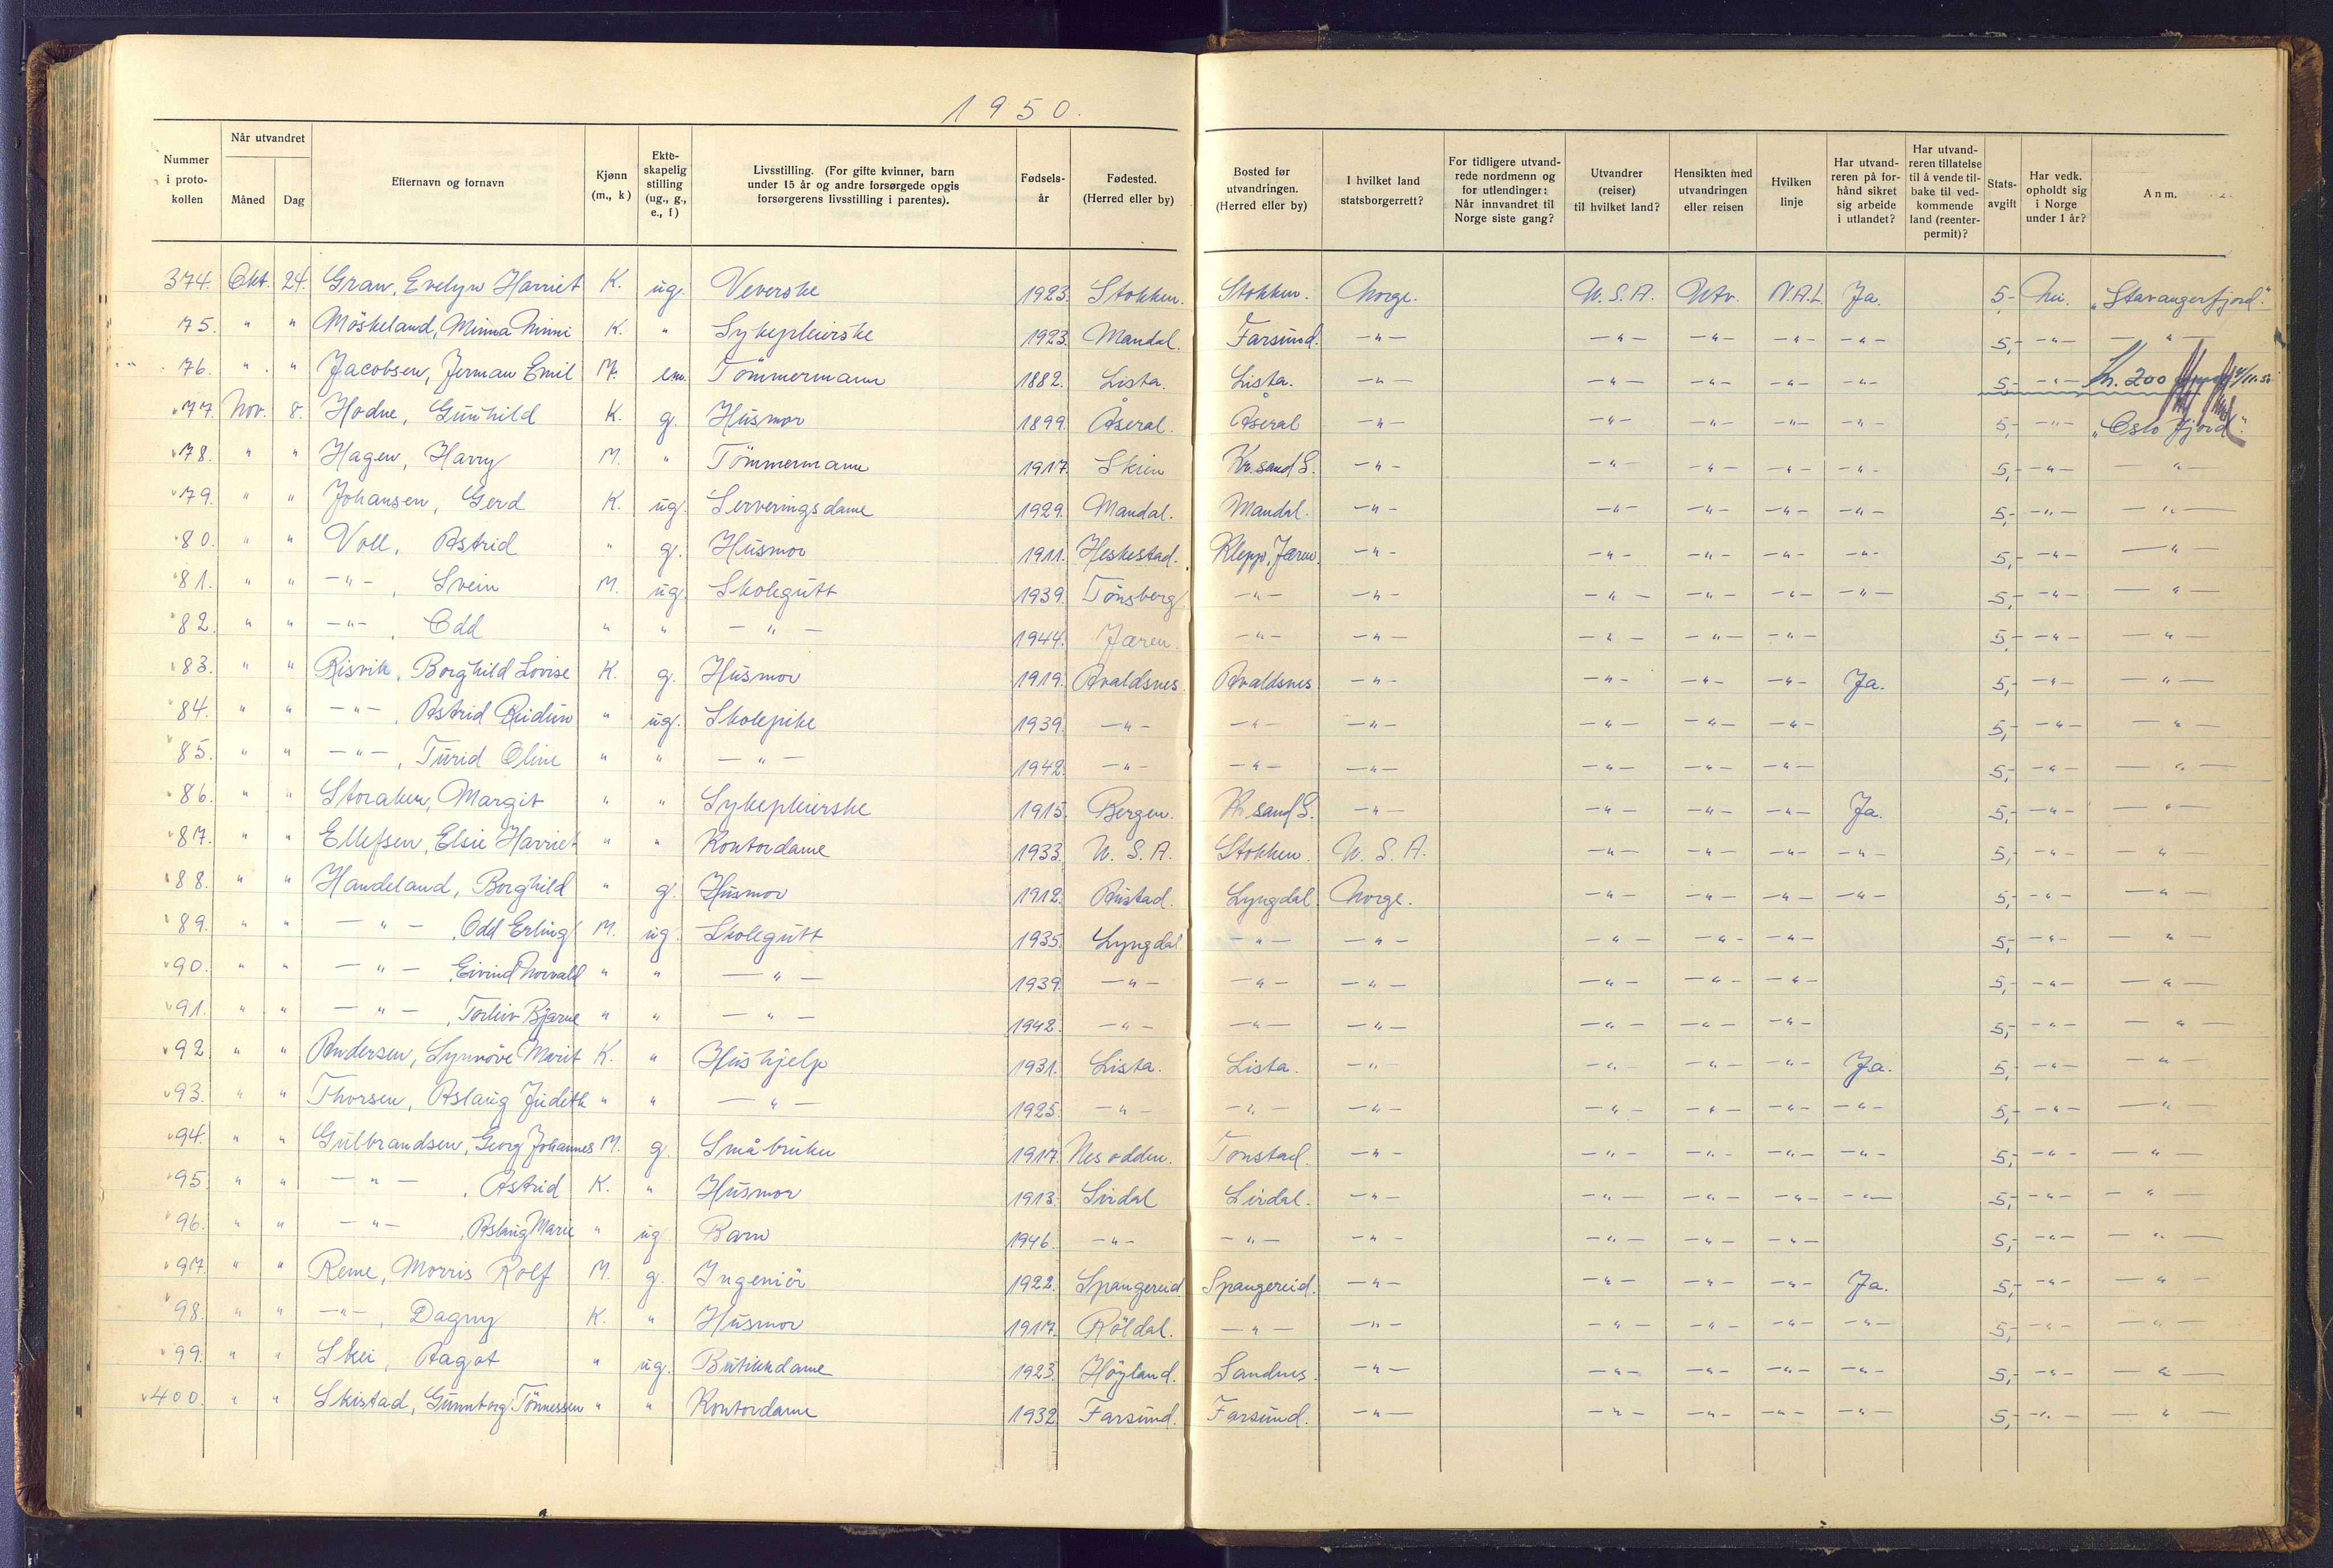 1950.
Nummer i proto-kollen | Når utvandret Måned | Dag | Efternavn og fornavn | Kjønn (m., k) | Ekte-skapelig stilling (ug., g., e., f) | Livsstilling. (For gifte kvinner, barn under 15 år og andre forsørgede opgis forsørgerens livsstilling i parentes). | Fødsels-år | Fødested. (Herred eller by) | Bosted før utvandringen. (Herred eller by) | I hvilket land statsborgerrett? | For tidligere utvand-rede nordmenn og for utlendinger: Når innvandret til Norge siste gang? | Utvandrer (reiser) til hvilket land? | Hensikten med utvandringen eller reisen | Hvilken linje | Har utvand-reren på for-hånd sikret sig arbeide i utlandet? | Har utvand-reren tillatelse til å vende til-bake til ved-kommende land (reenter-permit)? | Stats-avgift | Har vedk. opholdt sig i Norge under 1 år? | Anm.
374. Okt. 24. Gran, Evelyn Harriet K. ug. Veverske 1923. Stokken. Stokken. Norge. U.S.A. Utv. N.A.L. Ja. 5,- Nei. "Stavangerfjord."
75. " " Möskeland, Minna Minni K. " Sykepleierske 1923. Mandal. Farsund. -"- -"- -"- -"- -"- 5,- -"- -"-
76. " " Jacobsen, Jerman Emil M. em. Tömmermann 1882. Lista. Lista. -"- -"- -"- -"- -"- 5,- -"- Kr. 200
77. Nov. 8. Hodne, Gunhild K. g. Husmor 1899. Åseral. Åseral -"- -"- -"- -"- -"- 5,- -"- "Oslofjord".
78. " " Hagen, Harry M. " Tömmermann 1917. Skien Kr.sand S. -"- -"- -"- -"- -"- 5,- -"- -"-
79. " " Johansen, Gerd K. ug. Serveringsdame 1929. Mandal. Mandal. -"- -"- -"- -"- -"- 5,- -"- -"-
80. " " Voll, Astrid " g. Husmor 1911. Heskestad. Klepp, Jæren. -"- -"- -"- -"- -"- 5,- -"- -"-
81. " " -"-, Svein M. ug. Skolegutt 1939. Tönsberg -"- -"- -"- -"- -"- -"- 5,- -"- -"-
82. " " -"-, Odd " " -"- 1944. Jæren. -"- -"- -"- -"- -"- 5,- -"- -"-
83. " " Risvik, Borghild Lovise K. g. Husmor 1919. Avaldsnes. Avaldsnes -"- -"- -"- -"- Ja. 5,- -"- -"-
84. " " -"-, Astrid Reidun " ug. Skolepike 1939. -"- -"- -"- -"- -"- -"- 5,- -"- -"-
85. " " -"-, Turid Oline " " -"- 1942. -"- -"- -"- -"- -"- -"- 5,- -"- -"-
86. " " Storaker, Margit " " Sykepleierske 1915. Bergen. Kr.sand S. -"- -"- -"- -"- Ja. 5,- -"- -"-
87. " " Ellefsen, Elsie Harriet " " Kontordame 1933. U.S.A. Stokken. U.S.A. -"- -"- -"- -"- 5,- -"- -"-
88. " " Handeland, Borghild " g. Husmor 1912. Austad. Lyngdal Norge. -"- -"- -"- -"- 5,- -"- -"-
89. " " -"-, Odd Erling M. ug. Skolegutt 1935. Lyngdal. -"- -"- -"- -"- -"- 5,- -"- -"-
90. " " -"-, Eivind Thorvald " " -"- 1939. -"- -"- -"- -"- -"- -"- 5,- -"- -"-
91. " " -"-, Torleiv Bjarne " " -"- 1942. -"- -"- -"- -"- -"- -"- 5,- -"- -"-
92. " " Andersen, Synnöve Marit K. " Hushjelp 1931. Lista. Lista. -"- -"- -"- -"- Ja. 5,- -"- -"-
93. " " Thorsen, Aslaug Judith " " -"- 1925. -"- -"- -"- -"- -"- -"- -"- 5,- -"- -"-
94. " " Gulbrandsen, Georg Johannes M. g. Småbruker 1917. Nesodden. Tonstad. -"- -"- -"- -"- -"- 5,- -"- -"-
95. " " -"-, Astrid K. " Husmor 1913. Sirdal Sirdal. -"- -"- -"- -"- -"- 5,- -"- -"-
96. " " -"-, Aslaug Marie " ug. Barn 1946. -"- -"- -"- -"- -"- -"- 5,- -"- -"-
97. " " Reme, Morris Rolf M. g. Ingeniör 1922. Spangereid Spangereid. -"- -"- -"- -"- Ja. 5,- -"- -"-
98. " " -"-, Dagny K. " Husmor 1917. Röldal. -"- -"- -"- -"- -"- -"- 5,- -"- -"-
99. " " Skei, Aagot " ug. Butikkdame 1923. Höyland. Sandnes. -"- -"- -"- -"- -"- 5,- -"- -"-
400. " " Skistad, Gunnborg Tönnessen " " Kontordame 1932. Farsund. Farsund. -"- -"- -"- -"- -"- 5,- -"- -"-